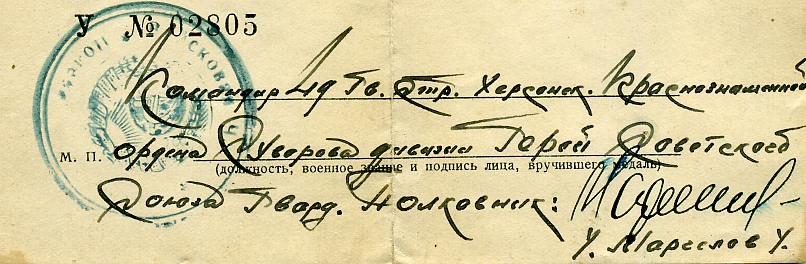 У № 02805
Командир 49 Гв. Стр. Херсонск. Краснознаменной
М. П. ордена Суворова дивизии Герой Советского
(должность, военное звание и подпись лица, вручившего медаль)
Союза Гвард. Полковник: